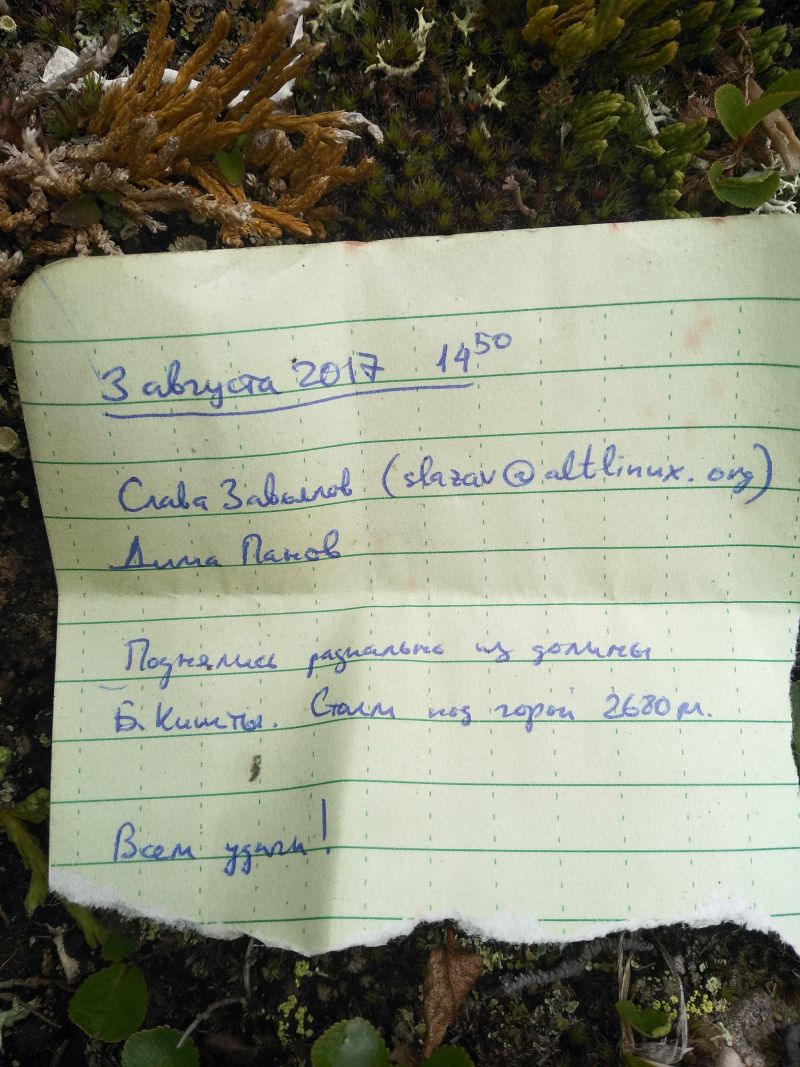 3 августа 2017 14⁵⁰
Слава Завьялов (slazav@altlinux.org)
Дима Панов
Поднялись радиально из долины
Б. Кишты. Стоим под горой 2680 м.
Всем удачи!